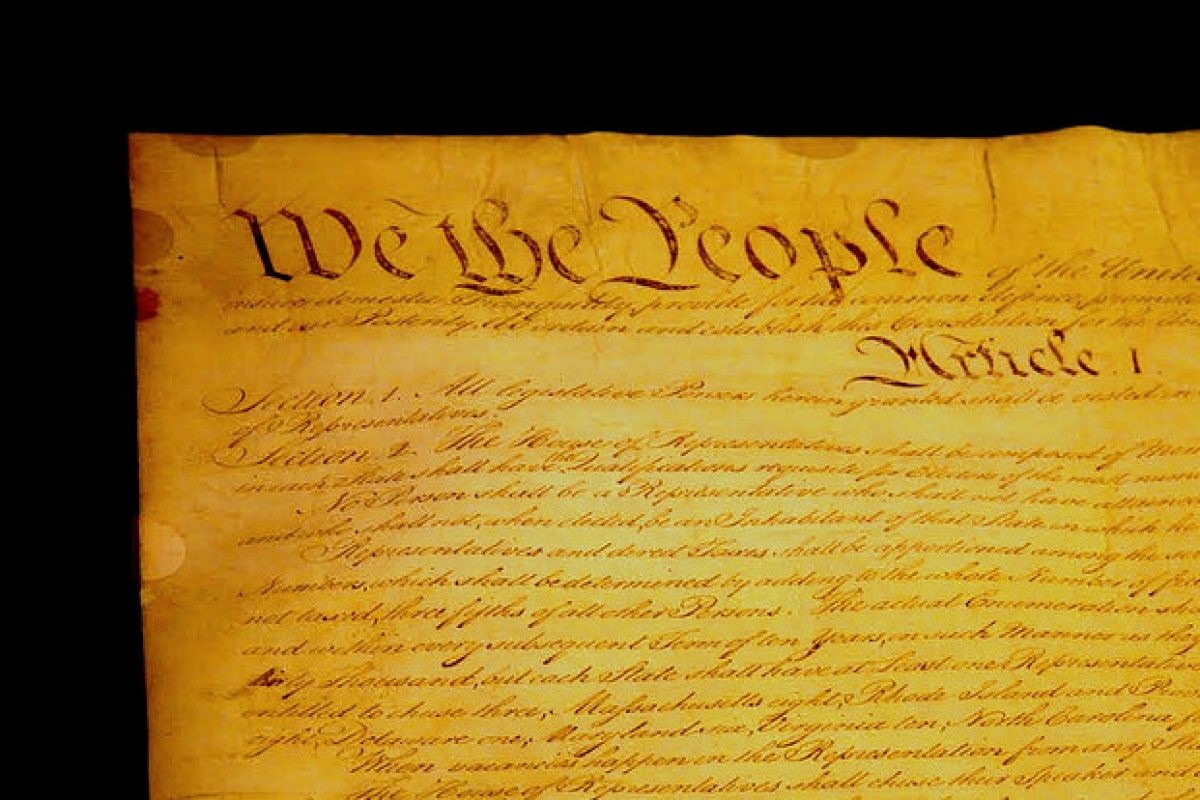 We the People of the Unite
insure domestic Tranquility, provide for the common defence, promote
and our Posterity, do ordain and establish this Constitution for the Unit
Article. I.
Section. 1. All legislative Powers herein granted shall be vested in
of Representatives.
Section. 2. The House of Representatives shall be composed of Mem
in each State shall have the Qualifications requisite for Electors of the most num
No Person shall be a Representative who shall not have attained
and who shall not, when elected, be an Inhabitant of that State in which he
Representatives and direct Taxes shall be apportioned among the sev
Numbers, which shall be determined by adding to the whole Number of fre
not taxed, three fifths of all other Persons. The actual Enumeration sha
and within every subsequent Term of ten Years, in such Manner as they
thirty Thousand, but each State shall have at Least one Representative
entitled to chuse three, Massachusetts eight, Rhode Island and Prov
eight, Delaware one, Maryland six, Virginia ten, North Carolina f
When vacancies happen in the Representation from any State
The House of Representatives shall chuse their Speaker and o